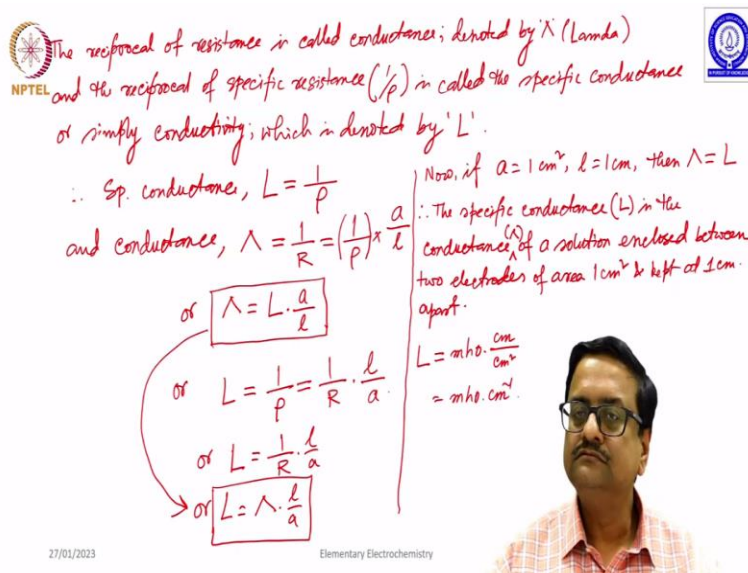 The reciprocal of resistance is called conductance; denoted by 'Λ' (Lamda)
and the reciprocal of specific resistance (1/ρ) is called the specific conductance
or simply conductivity; which is denoted by 'L'.
∴ Sp. conductance, L = 1/ρ
and conductance, Λ = 1/R = (1/ρ) × a/l
or Λ = L · a/l
or L = 1/ρ = 1/R · l/a
or L = 1/R · l/a
or L = Λ · l/a
Now, if a = 1 cm², l = 1 cm, then Λ = L
∴ The specific conductance (L) is the
conductance (Λ) of a solution enclosed between
two electrodes of area 1 cm² & kept at 1 cm.
apart.
L = mho · cm/cm²
= mho. cm⁻¹.
NPTEL
IN PURSUIT OF KNOWLEDGE
27/01/2023
Elementary Electrochemistry